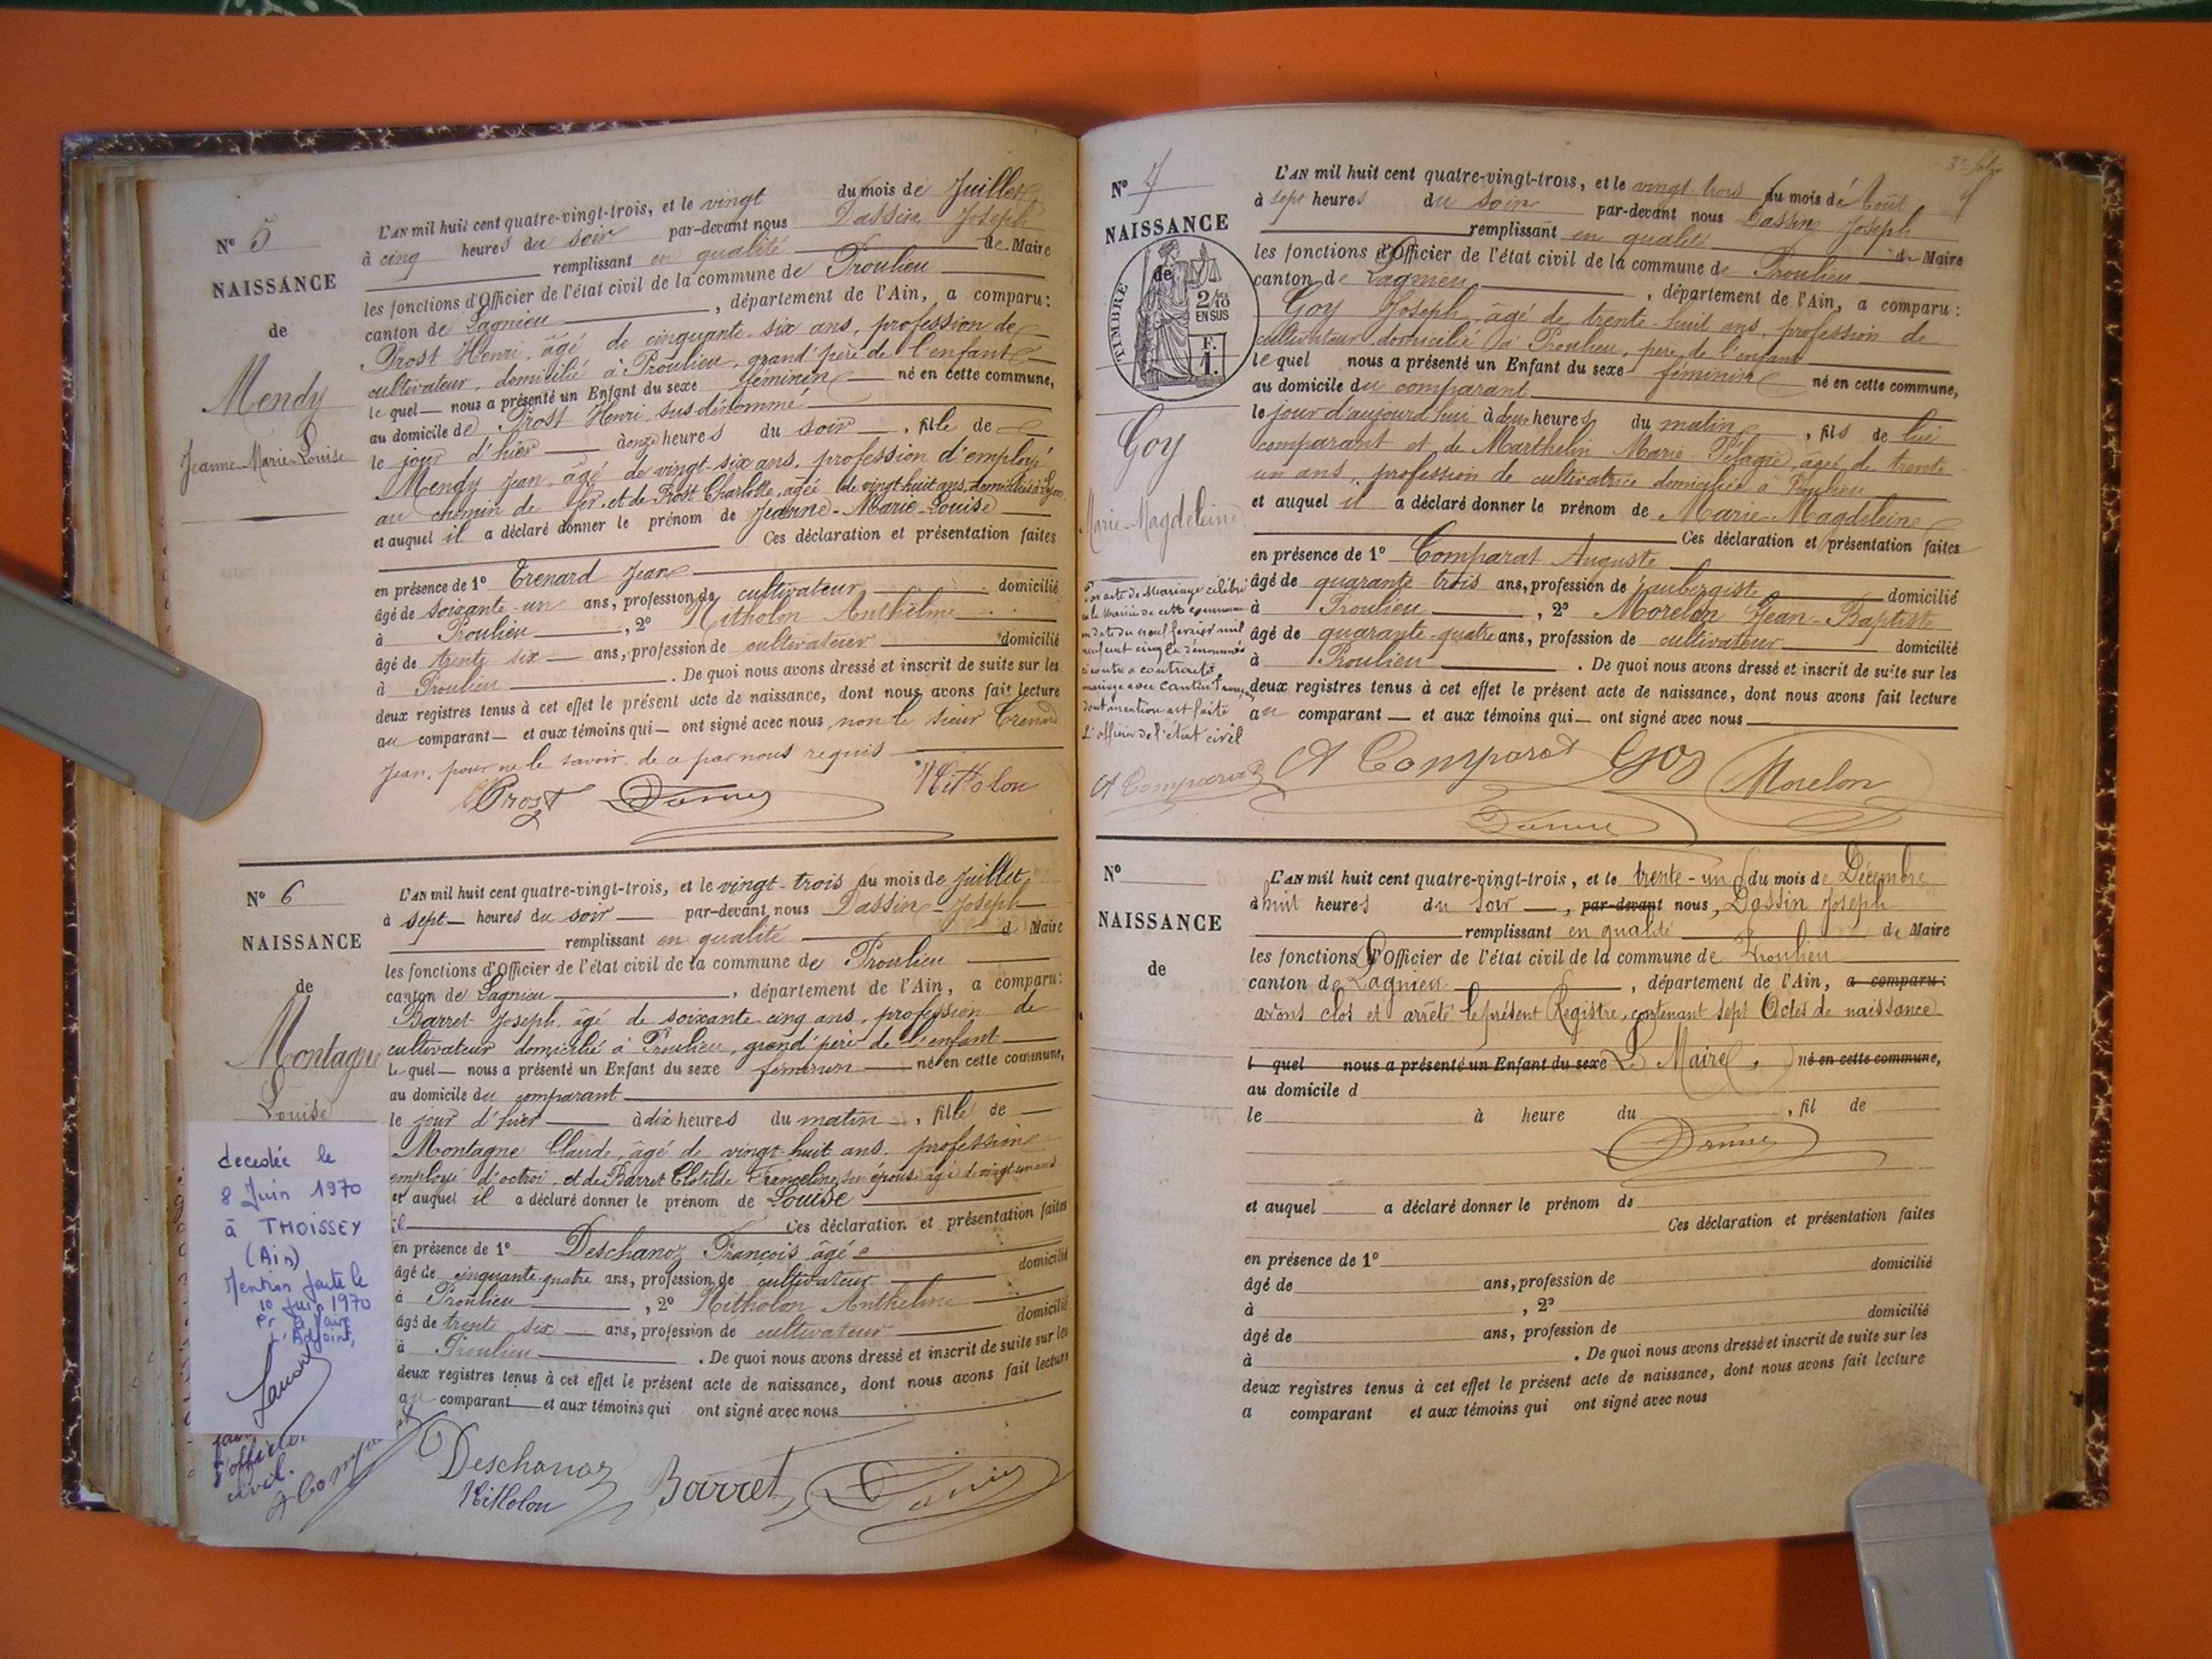 Nº 5
NAISSANCE
de
Mendy
Jeanne-Marie-Louise
L'AN mil huit cent quatre-vingt-trois, et le vingt du mois de Juillet
à cinq heures du soir par-devant nous Dassin Joseph
remplissant en qualité de Maire
les fonctions d'Officier de l'état civil de la commune de Proulieu
canton de Lagnieu, département de l'Ain, a comparu:
Prost Henri, âgé de cinquante-six ans, profession de
cultivateur, domicilié à Proulieu, grand'père de l'enfant
le quel nous a présenté un Enfant du sexe féminin né en cette commune,
au domicile de Prost Henri sus-dénommé
le jour d'hier à onze heures du soir, fille de
Mendy Jean, âgé de vingt-six ans, profession d'employé
au chemin de fer, et de Prost Charlotte, âgée de vingt-huit ans, domiciliés à Lyon
et auquel il a déclaré donner le prénom de Jeanne-Marie-Louise
Ces déclaration et présentation faites
en présence de 1º Trenard Jean
âgé de soixante-un ans, profession de cultivateur domicilié
à Proulieu, 2º Mitholon Anthelme
âgé de trente-six ans, profession de cultivateur domicilié
à Proulieu. De quoi nous avons dressé et inscrit de suite sur les
deux registres tenus à cet effet le présent acte de naissance, dont nous avons fait lecture
au comparant et aux témoins qui ont signé avec nous, non le sieur Trenard
Jean, pour ne le savoir, de ce par nous requis
Prost Mitholon
Nº 6
NAISSANCE
de
Montagne
Louise
decedée le
8 Juin 1970
à THOISSEY
(Ain)
Mention faite le
10 Juin 1970
Pr le Maire
L'Adjoint,
l'officier
civil.
L'AN mil huit cent quatre-vingt-trois, et le vingt-trois du mois de Juillet
à sept heures du soir par-devant nous Dassin Joseph
remplissant en qualité de Maire
les fonctions d'Officier de l'état civil de la commune de Proulieu
canton de Lagnieu, département de l'Ain, a comparu:
Barret Joseph, âgé de soixante-cinq ans, profession de
cultivateur domicilié à Proulieu, grand'père de l'enfant
le quel nous a présenté un Enfant du sexe féminin né en cette commune,
au domicile du comparant
le jour d'hier à dix heures du matin, fille de
Montagne Claude, âgé de vingt-huit ans, profession
employé d'octroi, et de Barret Clotilde Franceline, son épouse âgée de vingt un ans
et auquel il a déclaré donner le prénom de Louise
Ces déclaration et présentation faites
en présence de 1º Deschanoz François âgé
âgé de cinquante-quatre ans, profession de cultivateur domicilié
à Proulieu, 2º Mitholon Anthelme
âgé de trente six ans, profession de cultivateur domicilié
à Proulieu. De quoi nous avons dressé et inscrit de suite sur les
deux registres tenus à cet effet le présent acte de naissance, dont nous avons fait lecture
au comparant et aux témoins qui ont signé avec nous
Deschanoz Barret
Mitholon
Nº 7
NAISSANCE
de
TIMBRE
2/10
EN SUS
F.
1.
Goy
Marie-Magdeleine
Par acte de Mariage célébré
en la Mairie de cette commune
en date du neuf février mil
neuf cent cinq la dénommée
ci contre a contracté
mariage avec Cantin
dont mention est faite
L'officier de l'état civil
A Comparat
L'AN mil huit cent quatre-vingt-trois, et le vingt trois du mois de Août
à sept heures du soir par-devant nous Dassin Joseph
remplissant en qualité de Maire
les fonctions d'Officier de l'état civil de la commune de Proulieu
canton de Lagnieu, département de l'Ain, a comparu:
Goy Joseph, âgé de trente-huit ans, profession de
cultivateur domicilié à Proulieu, père de l'enfant
le quel nous a présenté un Enfant du sexe féminin né en cette commune,
au domicile du comparant
le jour d'aujourd'hui à deux heures du matin, fils de lui
comparant et de Marthelin Marie-Pélagie, âgée de trente
un ans, profession de cultivatrice domiciliée à Proulieu
et auquel il a déclaré donner le prénom de Marie-Magdeleine
Ces déclaration et présentation faites
en présence de 1º Comparat Auguste
âgé de quarante-trois ans, profession de aubergiste domicilié
à Proulieu, 2º Morelon Jean-Baptiste
âgé de quarante-quatre ans, profession de cultivateur domicilié
à Proulieu. De quoi nous avons dressé et inscrit de suite sur les
deux registres tenus à cet effet le présent acte de naissance, dont nous avons fait lecture
au comparant et aux témoins qui ont signé avec nous
A Comparat Goy Morelon
Nº
NAISSANCE
de
L'AN mil huit cent quatre-vingt-trois, et le trente-un du mois de Décembre
à huit heures du soir, par-devant nous, Dassin Joseph
remplissant en qualité de Maire
les fonctions d'Officier de l'état civil de la commune de Proulieu
canton de Lagnieu, département de l'Ain, a comparu:
avons clos et arrêté le présent Registre, contenant sept Actes de naissance
l quel nous a présenté un Enfant du sexe Le Maire, né en cette commune,
au domicile d
le à heure du, fil de
et auquel a déclaré donner le prénom de
Ces déclaration et présentation faites
en présence de 1º domicilié
âgé de ans, profession de
à, 2º domicilié
âgé de ans, profession de
à. De quoi nous avons dressé et inscrit de suite sur les
deux registres tenus à cet effet le présent acte de naissance, dont nous avons fait lecture
a comparant et aux témoins qui ont signé avec nous